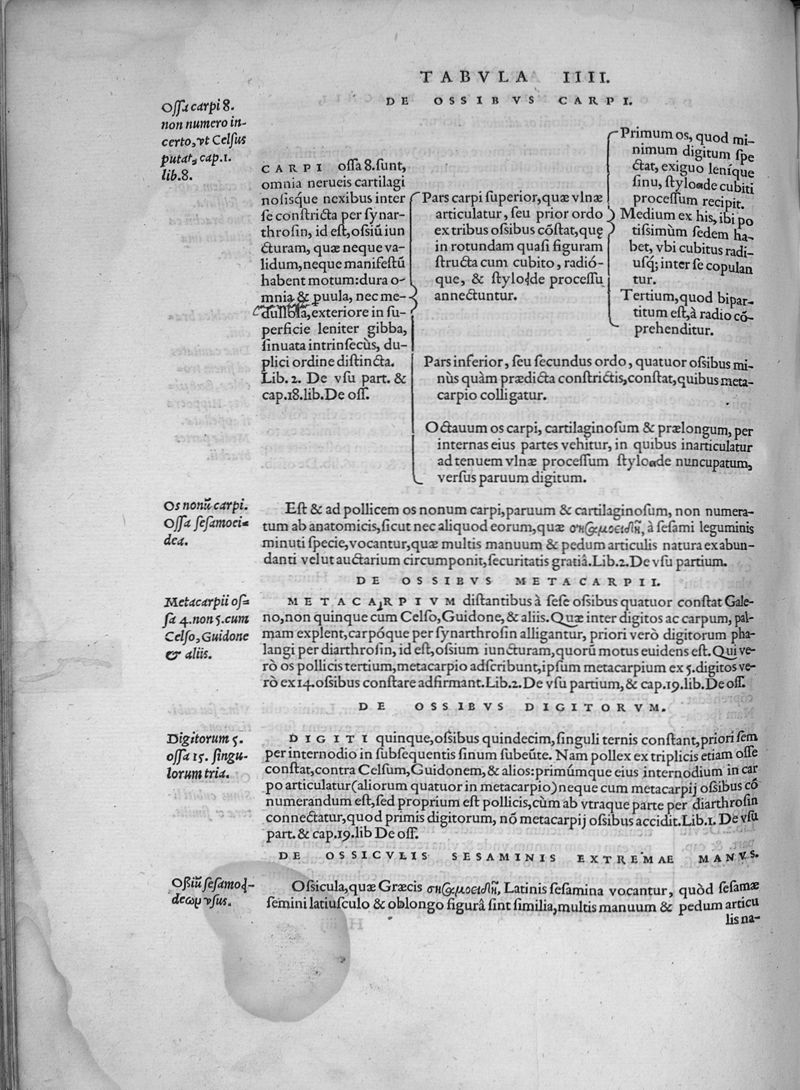 TABVLA IIII.
DE OSSIBVS CARPI.
Oſſa carpi 8.
non numero in-
certo, vt Celſus
putat, cap.1.
lib.8.
CARPI oſſa 8. ſunt,
omnia nerueis cartilagi
noſisque nexibus inter
ſe conſtricta per ſynar-
throſin, id eſt, oſsiū iun
cturam, quæ neque va-
lidum, neque manifeſtū
habent motum: dura o-
mnia & puula, nec me-
dulloſa, exteriore in ſu-
perficie leniter gibba,
ſinuata intrinſecùs, du-
plici ordine diſtincta.
Lib. 2. De vſu part. &
cap.18. lib. De oſſ.
Pars carpi ſuperior, quæ vlnæ
articulatur, ſeu prior ordo
ex tribus oſsibus cōſtat, quę
in rotundam quaſi figuram
ſtructa cum cubito, radió-
que, & ſtyloide proceſſu
annectuntur.
Primum os, quod mi-
nimum digitum ſpe
ctat, exiguo leníque
ſinu, ſtyloade cubiti
proceſſum recipit.
Medium ex his, ibi po
tiſsimùm ſedem ha-
bet, vbi cubitus radi-
uſq; inter ſe copulan
tur.
Tertium, quod bipar-
titum eſt, à radio cō-
prehenditur.
Pars inferior, ſeu ſecundus ordo, quatuor oſsibus mi-
nùs quàm prædicta conſtrictis, conſtat, quibus meta-
carpio colligatur.
Octauum os carpi, cartilaginoſum & prælongum, per
internas eius partes vehitur, in quibus inarticulatur
ad tenuem vlnæ proceſſum ſtyloade nuncupatum,
verſus paruum digitum.
Os nonū carpi.
Oſſa ſeſamoei-
dea.
Eſt & ad pollicem os nonum carpi, paruum & cartilaginoſum, non numera-
tum ab anatomicis, ſicut nec aliquod eorum, quæ σησαμοειδῆ, à ſeſami leguminis
minuti ſpecie, vocantur, quæ multis manuum & pedum articulis natura exabun-
danti velut auctarium circumponit, ſecuritatis gratiâ. Lib.2. De vſu partium.
DE OSSIBVS METACARPII.
Metacarpii oſ-
ſa 4. non 5. cum
Celſo, Guidone
& aliis.
METACARPIVM diſtantibus à ſeſe oſsibus quatuor conſtat Gale-
no, non quinque cum Celſo, Guidone, & aliis. Quæ inter digitos ac carpum, pal-
mam explent, carpóque per ſynarthroſin alligantur, priori verò digitorum pha-
langi per diarthroſin, id eſt, oſsium iuncturam, quorū motus euidens eſt. Qui ve-
rò os pollicis tertium, metacarpio adſcribunt, ipſum metacarpium ex 5. digitos ve-
rò ex 14. oſsibus conſtare adfirmant. Lib.2. De vſu partium, & cap.19. lib. De oſſ.
DE OSSIBVS DIGITORVM.
Digitorum 5.
oſſa 15. ſingu-
lorum tria.
DIGITI quinque, oſsibus quindecim, ſinguli ternis conſtant, priori ſem
per internodio in ſubſequentis ſinum ſubeūte. Nam pollex ex triplicis etiam oſſe
conſtat, contra Celſum, Guidonem, & alios: primúmque eius internodium in car
po articulatur (aliorum quatuor in metacarpio) neque cum metacarpij oſsibus cō
numerandum eſt, ſed proprium eſt pollicis, cùm ab vtraque parte per diarthroſin
connectatur, quod primis digitorum, nō metacarpij oſsibus accidit. Lib.1. De vſu
part. & cap.19. lib De oſſ.
DE OSSICVLIS SESAMINIS EXTREMAE MANVS.
Oſsiū ſeſamoi-
deωμ vſus.
Oſsicula, quæ Græcis σησαμοειδῆ, Latinis ſeſamina vocantur, quòd ſeſamæ
ſemini latiuſculo & oblongo figurâ ſint ſimilia, multis manuum & pedum articu
lis na-